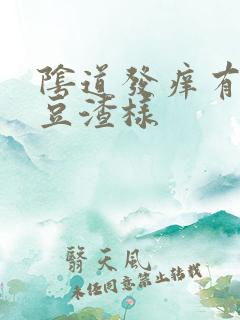 陰道發痒有
豆渣樣
翳天風
未任同意禁止转载